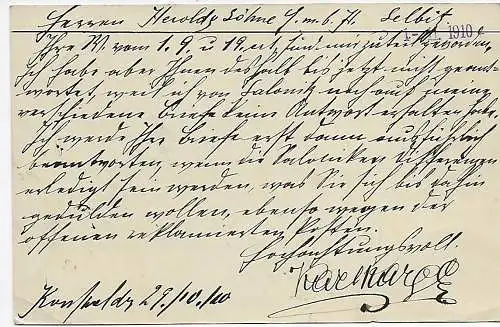 Herren Herold & Söhne G. m. b. H. Selbitz
1910
Ihre W. vom 1. 9. u 19. ert. sind mir zuteil geworden,
Ich habe aber Ihnen deshalb bis jetzt nicht geant-
wortet, weil ich von Salonik noch auf meine
verschiedene Briefe keine Antwort erhalten habe.
Ich werde Ihre Briefe erst dann ausführlich
beantworten, wenn die Saloniker Differenzen
erledigt sein werden, was Sie sich bis dahin
gedulden wollen, ebenso wegen der
offenen reklamierten Posten.
Hochachtungsvoll.
29/10/10